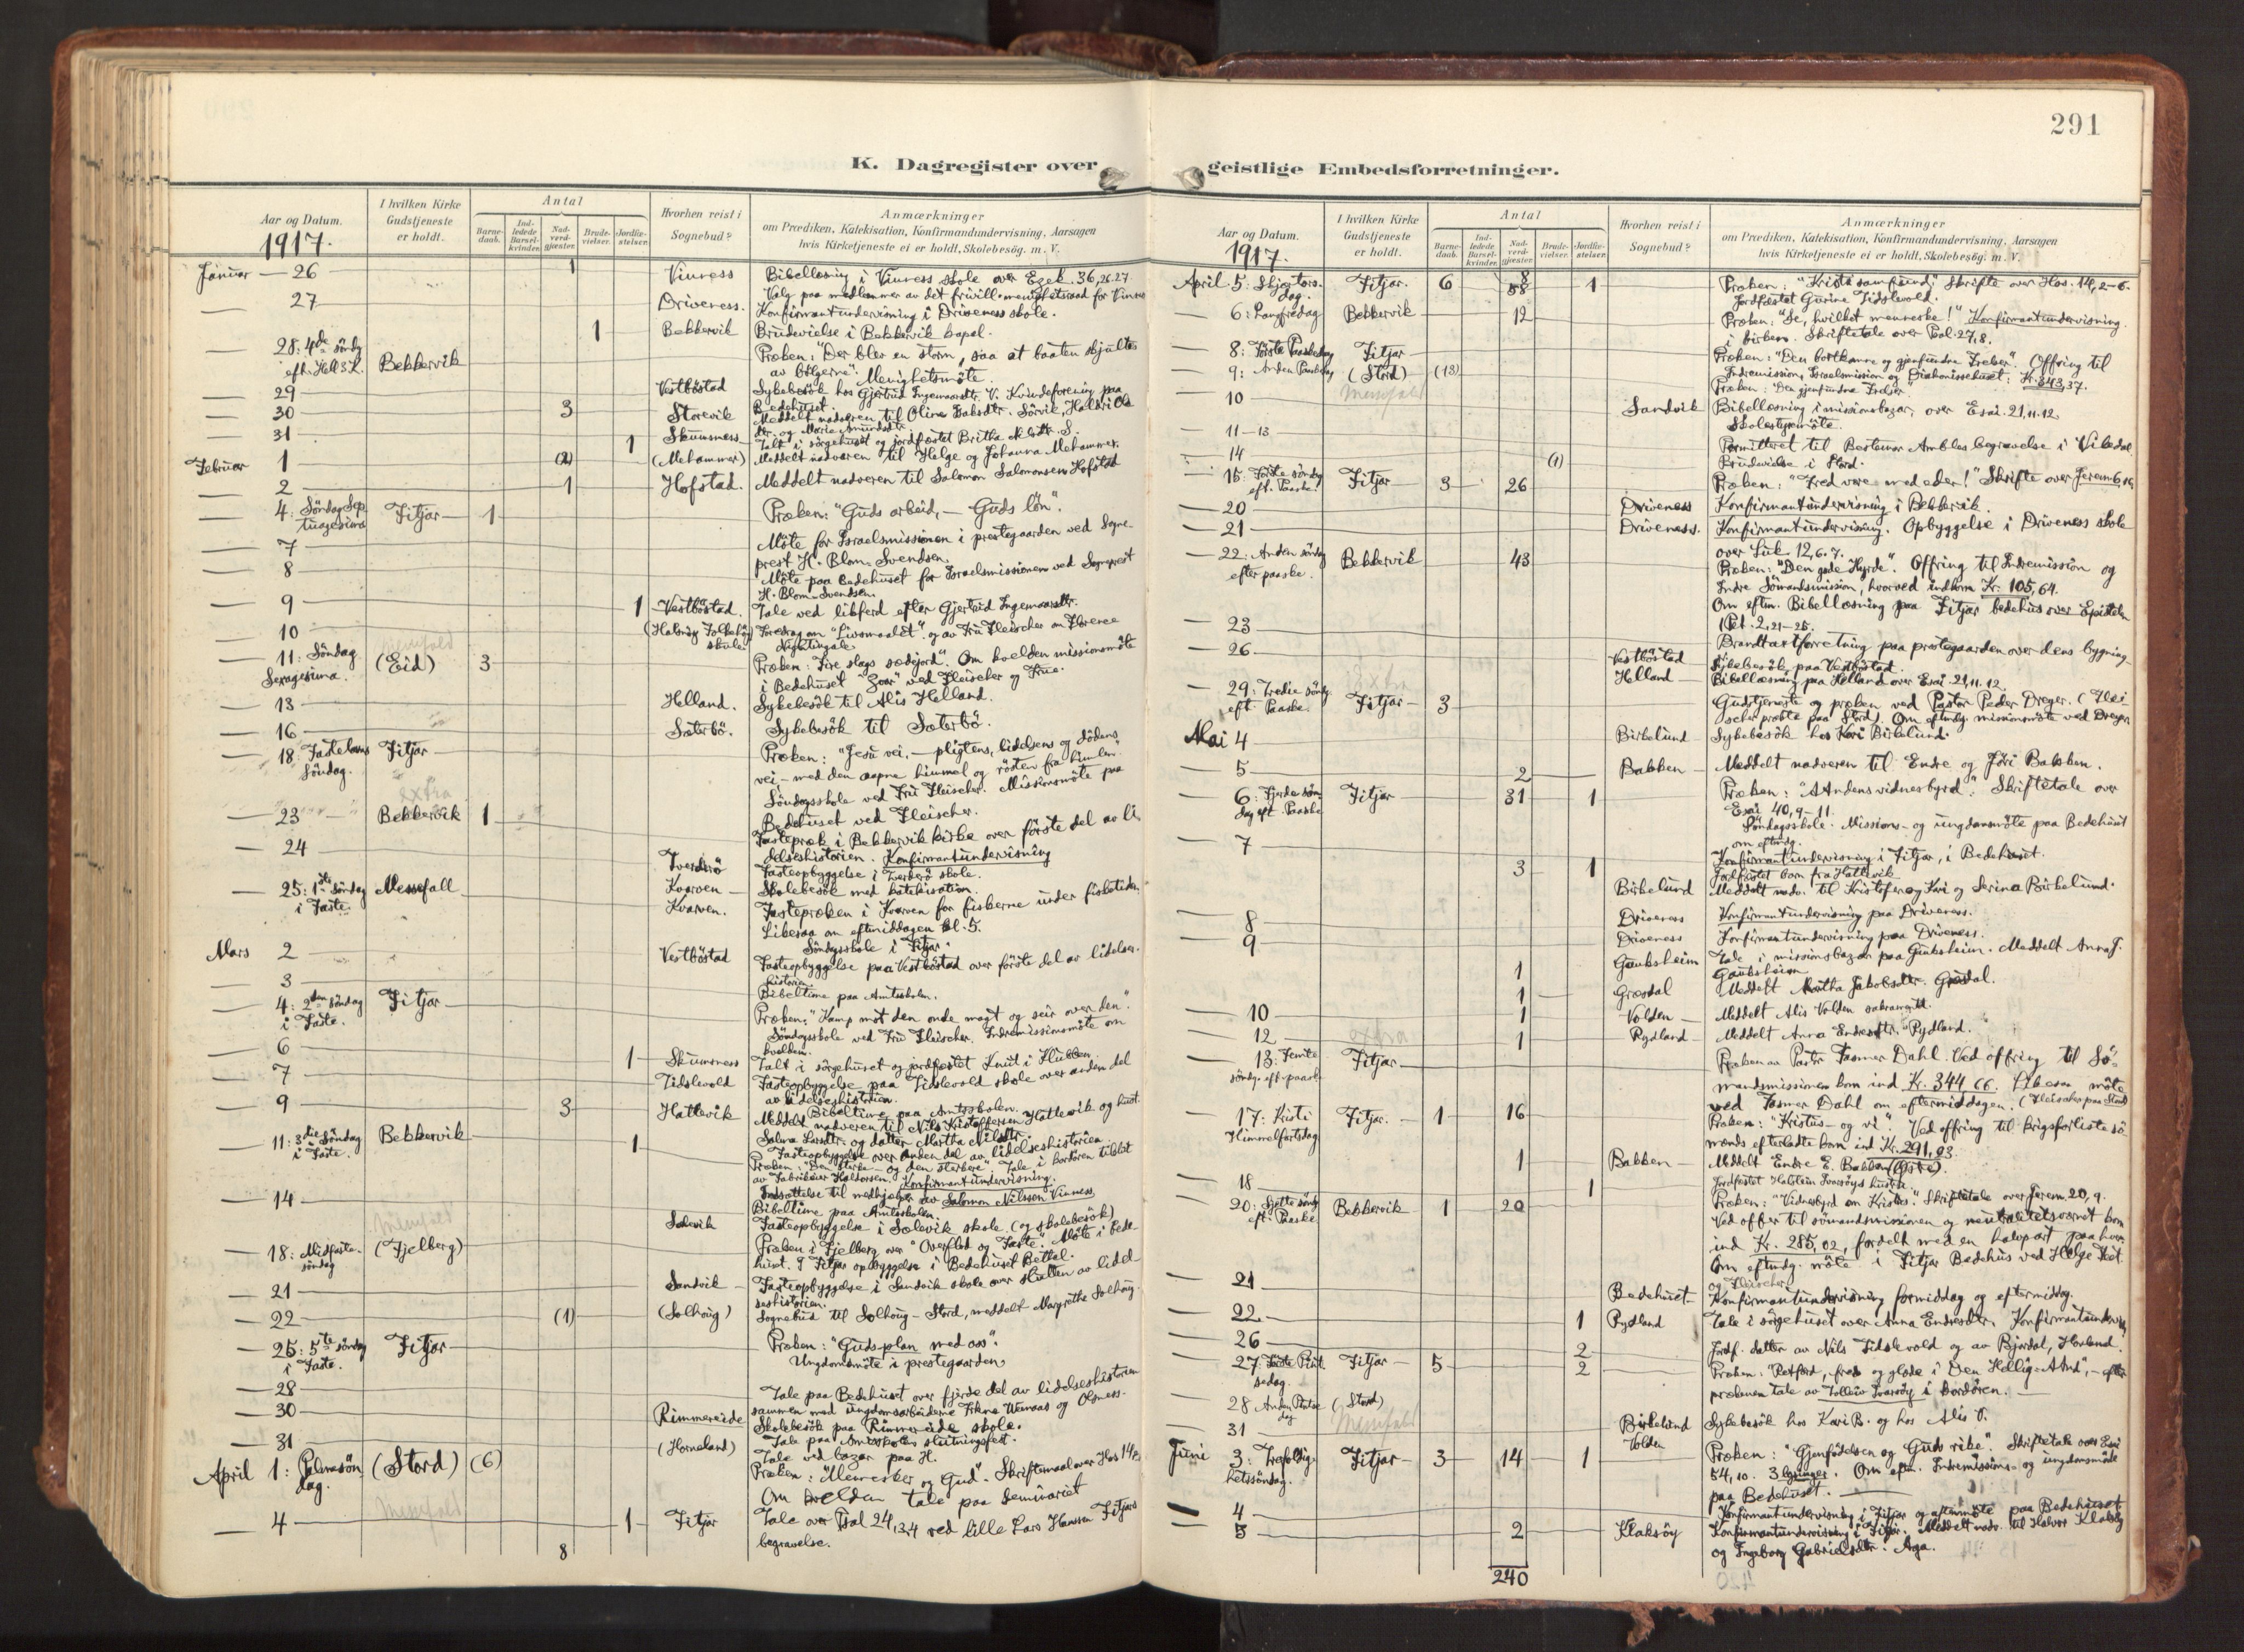 291
K. Dagregister over geistlige Embedsforretninger.
Aar og Datum.
1917.
I hvilken Kirke Gudstjeneste er holdt.
Antal
Barne-daab.
Ind-ledede Barsel-kvinder.
Nad-verd-gjester.
Brude-vielser.
Jordfæ-stelser.
Hvorhen reist i Sognebud?
Anmærkninger
om Prædiken, Katekisation, Konfirmandundervisning, Aarsagen
hvis Kirketjeneste ei er holdt, Skolebesög. m. V.
Januar — 26 1 Vinness Bibellæsning i Vinness skole over Ezek. 36,26.27
Valg paa medlemmer av det frivill. menighetsraad for Vinness
— 27 Driveness. Konfirmantundervisning i Driveness skole.
1 Bekkervik Brudevielse i Bekkervik kapel.
— 28: 4de søndg eft. Hell 3 K. Bekkervik Præken: "Der blev en storm, saa at baaten skjultes
av bölgerne". Menighetsmöte.
— 29 Vestböstad Sykebesök hos Gjertrud Ingemarsdtr. V. Kvindeforening paa
Bedehuset.
— 30 3 Storevik Meddelt nadveren til Oline Jaksdtr. Sörvik, Haldri Ols
dtr. og Maria Amundsdtr.
— 31 1 Skumsness Talt i sörgehuset og jordfæstet Britha Nilsdtr. S.
Februar 1 (2) (Mehammer) Meddelt nadveren til Helge og Johanna Mehammer.
— 2 1 Hofstad. Meddelt nadveren til Salomon Salomonsen Hofstad
— 4: Söndag Septuagesima Fitjar — 1 Præken: "Guds arbeid, — Guds lön".
— 7 Möte for Israelsmissionen i prestegaarden ved Sogne-
prest H. Blom-Svendsen.
— 8 Möte paa Bedehuset for Israelsmissionen ved Sogneprest
H. Blom-Svendsen.
— 9 1 Vestböstad. Tale ved likferd efter Gjertrud Ingemarsdtr.
— 10 (Halsnöy Folkehög skule) Foredrag om "Livsmaalet". og av Fru Fleischer om Florence
Nightingale.
— 11: Söndag Sexagesima. (Eid) 3 Præken: "Fire slags sædejord". Om kvelden missionsmöte
i Bedehuset "Zoar" ved Fleischer og Frue.
— 13 Helland. Sykebesök til Alis Helland.
— 16 Sæterbö. Sykebesök til Sæterbö.
— 18 Fastelavns Söndag. Fitjar — Præken: "Jesu vei, — pligtens, lidelsens og dödens
vei — med den aapne himmel og rösten fra himlen".
Söndagsskole ved Fru Fleischer. Missionsmöte paa
Bedehuset ved Fleischer.
— 23 extra Bekkervik 1 Fastepræk i Bekkervik kirke over förste del av li-
delseshistorien. Konfirmantundervisning
— 24 Tverderö Fasteopbyggelse i Tverderö skole.
Kvarven — Skolebesök med katekisation.
— 25: 1ste söndag i Faste. Messefall Kvarven. Fastepræken i Kvarven for fiskerne under fisketiden
Likesaa om eftmiddagen kl. 5.
Söndagsskole i Fitjar.
Mars 2 Vestböstad Fasteopbyggelse paa Vestböstad over förste del av lidelses-
historien.
— 3 Bibeltime paa Amtsskolen.
— 4: 2den söndag i Faste. Fitjar — Præken: "Kamp mot den onde magt og seir over den".
Söndagsskole ved Fru Fleischer. Indremissionsmöte om
kvelden.
— 6 1 Skumsness Talt i sörgehuset og jordfæstet Knut i Klubben
— 7 Tidslevold Fasteopbyggelse paa Tidslevold skole over anden del
av lidelseshistorien.
Bibeltime paa Amtsskolen.
— 9 3 Hattevik Meddelt nadveren til Nils Kristoffersen Hattevik og hust.
Salma Larsdtr. og datter Martha Nilsdtr.
Fasteopbyggelse over anden del av lidelseshistorien.
— 11: 3die Söndag i Faste. Bekkervik 1 Præken: "Den sterke — og den sterkere". Tale i kordören tilslut
av Fabrikeier Haldorsen. Konfirmantundervisning.
Indsættelse til medhjelper av Salomon Nilssen Vinness
— 14 Bibeltime paa Amtsskolen.
Sælevik Fasteopbyggelse i Sælevik skole (og skolebesök)
— 18: Midfaste-söndag (Fjelberg) Præken i Fjelberg over "Overflod og Faste". Möte i Bede-
huset. I Fitjar opbyggelse i Bedehuset Bettal.
— 21 Sandvik Fasteopbyggelse i Sandvik skole over slutten av lidel-
seshistorien.
— 22 (1) (Solhoug) Sognebud til Solhoug — Stord, meddelt Margrethe Solhoug.
— 25: 5te söndag i Faste. Fitjar — Præken: "Guds plan med oss".
Ungdomsmöte i prestegaarden.
— 28 Tale paa Bedehuset over fjerde del av lidelseshistorien
sammen med ungdomsarbeiderne og Olsness.
— 30 Rimmereide Skolebesök paa Rimmereide skole.
Tale paa Amtsskolens slutningsfest.
— 31 (Horneland) Tale ved bazar paa H.
April 1: Palmesön dag. (Stord) (6) Præken: "Mennesker og Gud". Skriftemaal over Hos 14,2
Om kvelden tale paa Seminariet
Messefald
— 4 1 Fitjar Tale over Psal 24, 3,4 ved lille Lars Hansen Fitjars
begravelse.
8
Aar og Datum.
1917.
I hvilken Kirke Gudstjeneste er holdt.
Antal
Barne-daab.
Ind-ledede Barsel-kvinder.
Nad-verd-gjester.
Brude-vielser.
Jordfæ-stelser.
Hvorhen reist i Sognebud?
Anmærkninger
om Prædiken, Katekisation, Konfirmandundervisning, Aarsagen
hvis Kirketjeneste ei er holdt, Skolebesög. m. V.
April 5: Skjærtors. dag. Fitjar. 6 8 58 1 Præken: "Kristi samfund". Skrifte over Hos. 14, 2-6.
Jordfæstet Gurine Tidslevold.
— 6: Langfredag Bekkervik 12 Præken: "Se, hvilket menneske!" Konfirmantundervisning
i kirken. Skriftetale over Psal. 27,8.
— 8: Förste Paaskedag Fitjar Præken: "Den bortkomne og gjenfundne Frelser". Offring til
Indremission, Israelsmission og Diakonissehuset: Kr. 343,37.
— 9: Anden Paaskedag (Stord) (13) Præken: "Den gjenfundne Frelser".
— 10 Messefald Sandvik Bibellæsning i missionsbazar, over Esai. 21,11.12
Skolestyremöte.
— 11—13 Permitteret til Bestemor Ambles begravelse i Vikedal
— 14 (1) Brudevielse i Stord.
— 15: Förste söndag eft. Paaske. Fitjar 3 26 Præken: "Fred være med eder!" Skrifte over Jerem 6,16
— 20 Driveness Konfirmantundervisning i Bekkervik.
— 21 Driveness. Konfirmantundervisning. Opbyggelse i Driveness skole
over Luk. 12,6.7.
— 22: Anden söndag efter paaske. Bekkervik 43 Præken: "Den gode Hyrde". Offring til Indremission og
Indre Sömandsmission, hvorved indkom Kr. 105,64.
Om eftm. Bibellæsning paa Fitjar bedehus over Epistelen
1 Pet. 2,21-25.
— 23 Brandtaxtforretning paa prestegaarden over dens bygning
— 26 Vestböstad Sykebesök paa Vestböstad.
Helland — Bibellæsning paa Helland over Esai. 21,11.12.
— 29: Tredie söndg. eft. Paaske. Fitjar — 3 Gudstjeneste og præken ved Pastor Peder Dreyer. (Flei-
scher prækte paa Stord). Om eftmdg. missionsmöte ved Dreyer
Mai 4 Birkelund Sykebesök hos Kari Birkelund.
— 5 2 Bakken — Meddelt nadveren til Endre og Jöri Bakken.
— 6: Fjerde söndag eft. Paaske Fitjar 31 1 Præken: "Aandens vidnesbyrd". Skriftetale over
Esai 40, 9-11.
Söndagsskole. Missions- og ungdomsmöte paa Bedehuset
om eftmdg.
— 7 Konfirmantundervisning i Fitjar, i Bedehuset.
3 1 Jordfæstet barn fra Hattevik
Birkelund Meddelt nadv. til Kristofer og Kari og Serina Birkelund.
— 8 Driveness Konfirmantundervisning paa Driveness.
— 9 Driveness Konfirmantundervisning paa Driveness.
1 Gauksheim Tale i missionsbazar paa Gauksheim. Meddelt Anna J.
Gauksheim
1 Græsdal Meddelt Martha Jakobsdtr. Græsdal.
— 10 1 Volden — Meddelt Alis Volden sakramntt.
— 12 1 Rydland — Meddelt Anna Endresdtr. Rydland.
— 13: Femte söndg. eft. paaske Fitjar — Præken av Pastor Fasmer Dahl. Ved offring til Sö-
mandsmissionen kom ind Kr. 344,66. Likesaa möte
ved Fasmer Dahl om eftermiddagen. (Fleischer paa Stord)
— 17: Kristi Himmelfartsdag Fitjar. 1 16 Præken: "Kristus — og vi". Ved offring til krigsforliste sö-
mænds efterladte kom ind Kr. 291,93.
1 Bakken — Meddelt Endre E. Bakken (Östre).
— 18 1 Jordfæstet Halstein Ivarsöys hustru.
— 20: Sjette söndg eft. Paaske Bekkervik 1 20 Præken: "Vidnesbyrd om Kristus". Skriftetale over Jerem. 20,9.
Ved offer til sömandsmissionen og neutralitetsværnet kom
ind Kr. 285,02, fordelt med en halvpart paa hver.
Om eftmdg. möte i Fitjar Bedehus ved Helge
og Fleischer
— 21 Bedehuset Konfirmantundervisning formiddag og eftermiddag.
— 22 1 Rydland Tale i sörgehuset over Anna Endresdtr. Konfirmantundervisn.
— 26 2 Jordf. datter av Nils Tidslevold og av Bjordal, Hovland.
— 27: Förste Pint sedag. Fitjar — 5 2 Præken: "Retfærd, fred og glæde i Den Hellig-Aand", — efter
præknen tale av Tollev Ivarsöy i kordören.
28 Anden Pintse dag (Stord)
— 31 Messefald Birkelund Sykebesök hos Kari B. og hos Alis V.
Volden
Juni 3: Trefoldig-hetssöndag. Fitjar — 3 14 1 Præken: "Gjenfödelsen og Guds rike". Skriftetale over Esai
54,10. 3 lysninger. Om eftm. Indremissions- og ungdomsmöte
paa Bedehuset.
— 4 Konfirmantundervisning i Fitjar og aftenmöte paa Bedehuset
— 5 2 Klaksöy Konfirmantundervisning i Fitjar. Meddelt nadv. til Halvor Klaksöy
og Ingeborg Gabrielsdtr. Aga.
240